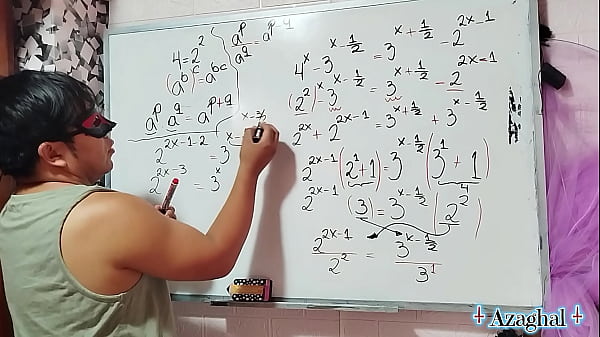 4 = 2²
(a^b)^c = a^bc
a^p a^q = a^p+q
2^2x-1-2 = 3^x-
x-3/2
2^2x-3 = 3^x
4^x - 3^x-1/2 = 3^x+1/2 - 2^2x-1
(2²)^x - 3^x-1/2 = 3^x+1/2 - 2^2x-1
2^2x + 2^2x-1 = 3^x+1/2 + 3^x-1/2
2^2x-1 (2^1 + 1) = 3^x-1/2 (3^1 + 1)
2^2x-1 (3) = 3^x-1/2 (2²)
4
2^2x-1/2² = 3^x-1/2/3^1
+ Azaghal +